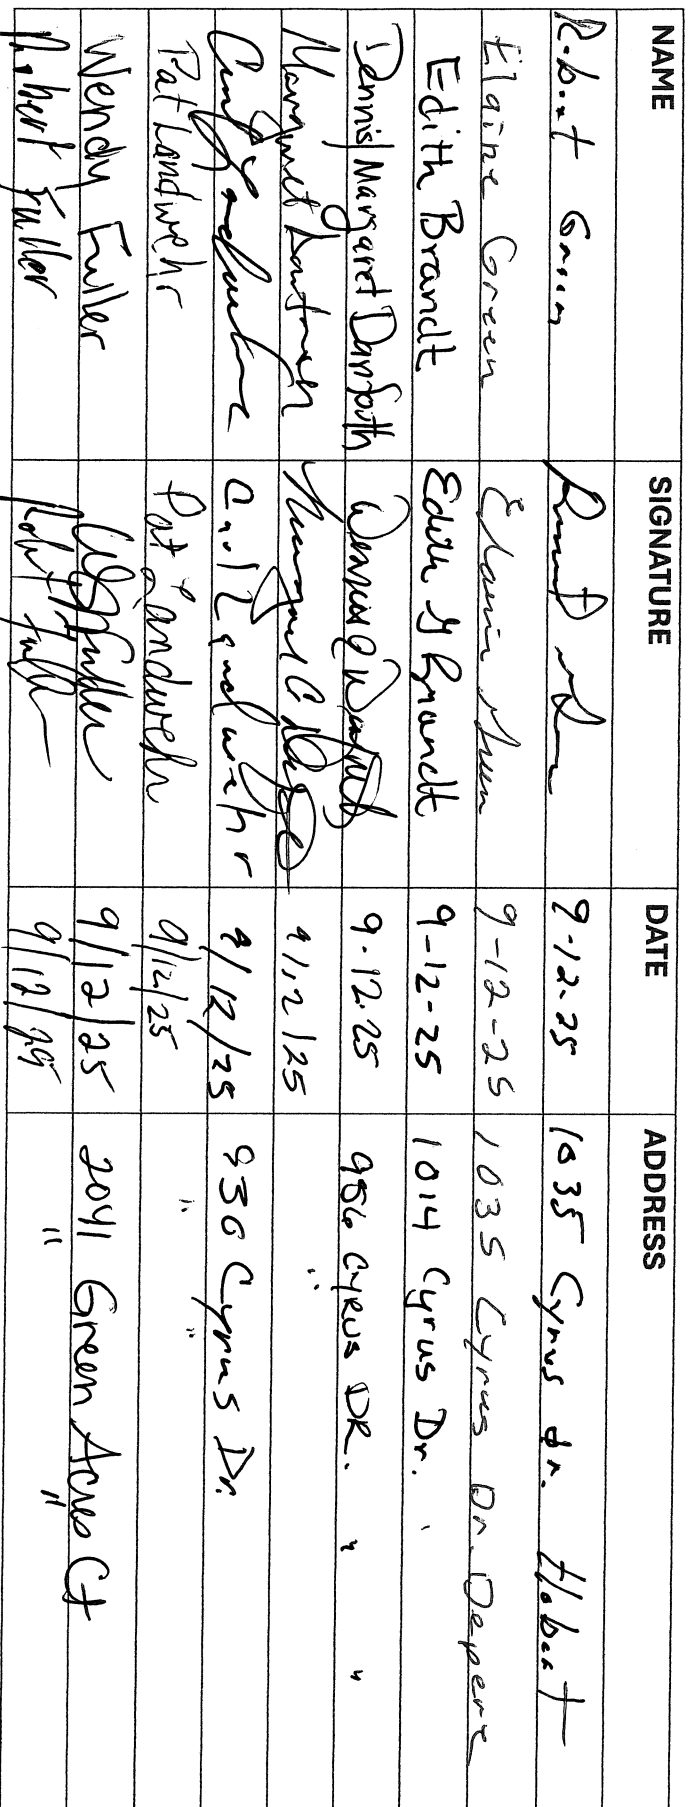 NAME SIGNATURE DATE ADDRESS
Robert Green 9-12-25 1035 Cyrus Dr. Hobart
Elaine Green Elaine Green 9-12-25 1035 Cyrus Dr. Depere
Edith Brandt Edith G Brandt 9-12-25 1014 Cyrus Dr.
Dennis/Margaret Danfoth 9.12.25 986 Cyrus DR. " "
Margaret 9/12/25 "
9/12/25 930 Cyrus Dr.
Pat Landwehr Pat Landwehr 9/12/25 " "
Wendy Fuller W Fuller 9/12/25 2041 Green Acres Ct
Robert Fuller Robert Fuller 9/12/25 " "